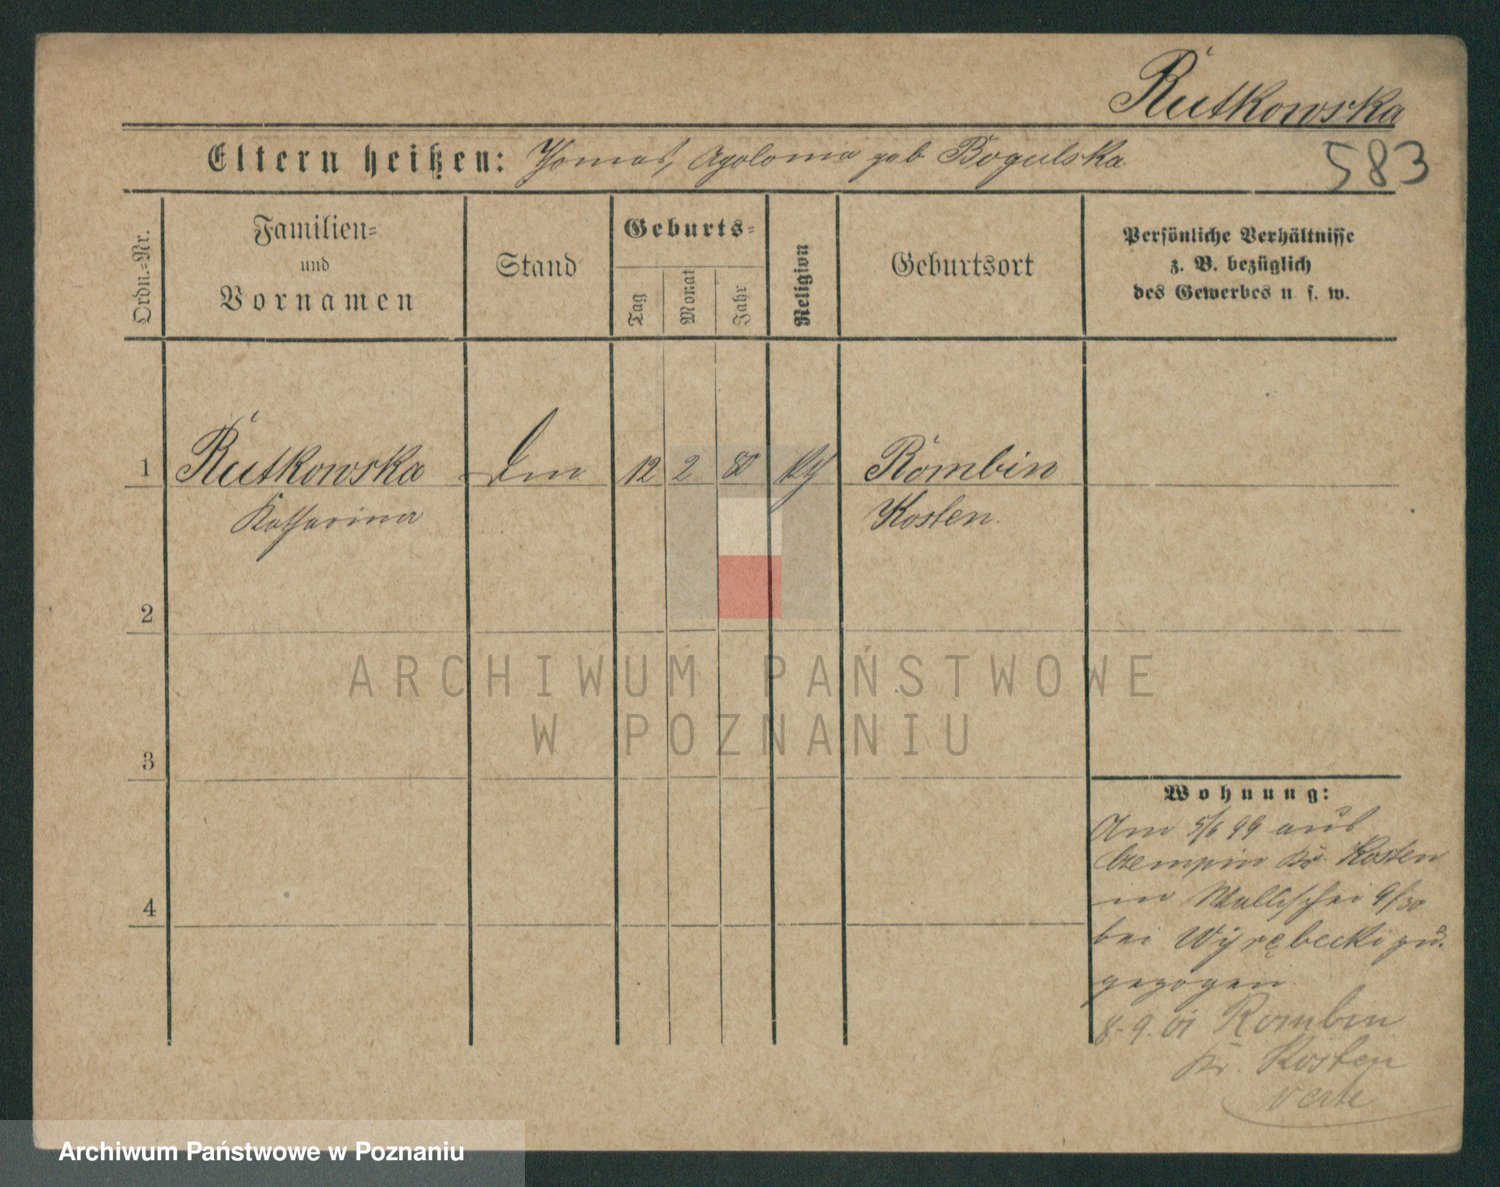 Rutkowska
583
Eltern heißen: Thomas, Apolonia geb Bogulska
Ordn.-Nr.
Familien=
und
Vornamen
Stand
Geburts=
Tag
Monat
Jahr
Religion
Geburtsort
Persönliche Verhältnisse
z. B. bezüglich
des Gewerbes u. s. w.
1 Rutkowska 12 2 80 Rombin
Katharina Kosten.
2
ARCHIWUM PAŃSTWOWE
W POZNANIU
3
4
Wohnung:
Am 5/6 99 aus
Czempin Kr. Kosten
Wallischei 9/30
bei Wyrębecki zu=
gezogen
8.9.01 Rombin
Kr. Kosten
verte
Archiwum Państwowe w Poznaniu